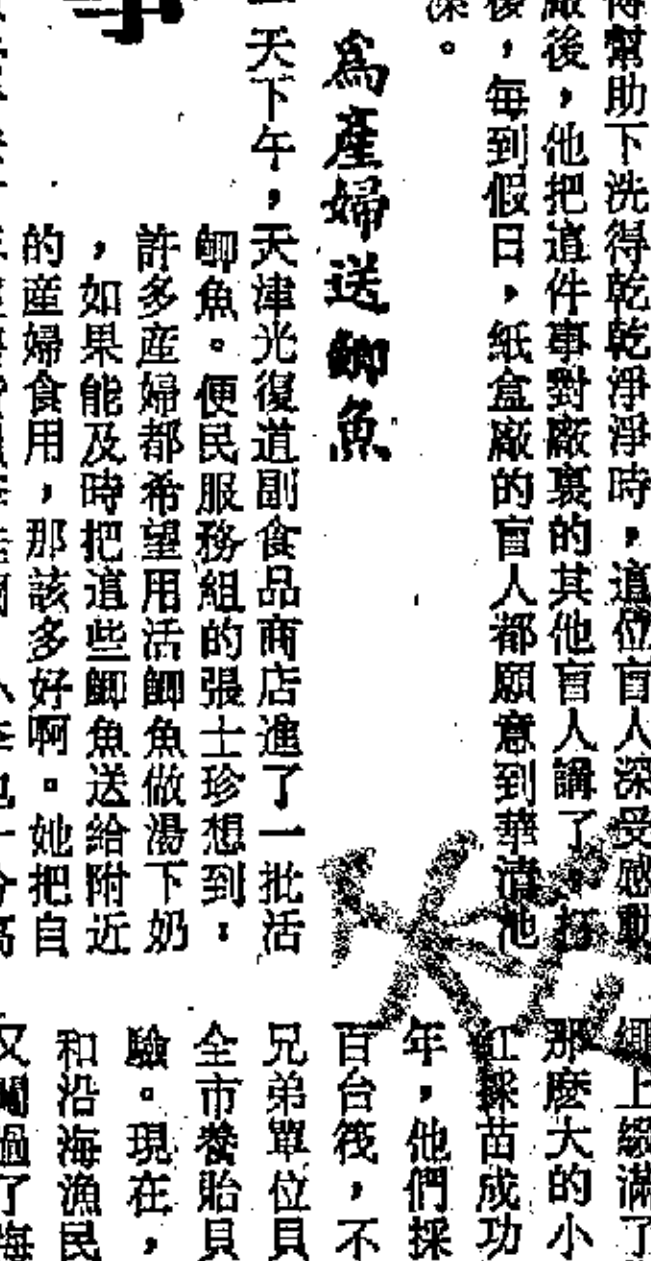 得幫助下洗得乾乾淨淨時，這位盲人深受感動
廠後，他把這件事對廠裏的其他盲人講了。
後，每到假日，紙盒廠的盲人都願意到華清池
深。
爲產婦送鯽魚
天下午，天津光復道副食品商店進了一批活
鯽魚。便民服務組的張士珍想到：
許多產婦都希望用活鯽魚做湯下奶
，如果能及時把這些鯽魚送給附近
的產婦食用，那該多好啊。她把自
繩上綴滿了
那麽大的小
紅採苗成功
年，他們採
百台筏，不
兄弟單位貝
全市養貽貝
驗。現在，
和沿海漁民
又闖過了海